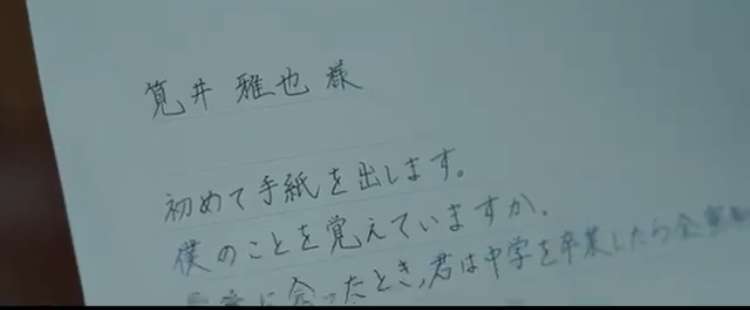 筧井 雅也 様
初めて手紙を出します。
僕のことを覚えていますか。
に会ったとき、君は中学を卒業したら全寮